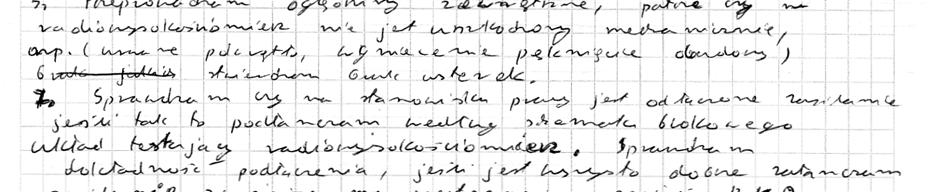 Przeprowadzam oględziny zewnętrzne, patrzę czy na
radiowysokościomierz nie jest uszkodzony mechanicznie,
np. ( urwane pokrętło, wgniecenie pęknięcie obudowy )
stwierdzam brak usterek.
7. Sprawdzam czy na stanowisku pracy jest odłączone zasilanie
jeśli tak to podłączam według schematu blokowego
układ testujący radiowysokościomierz. Sprawdzam
dokładność podłączenia, jeśli jest wszystko dobrze załączam